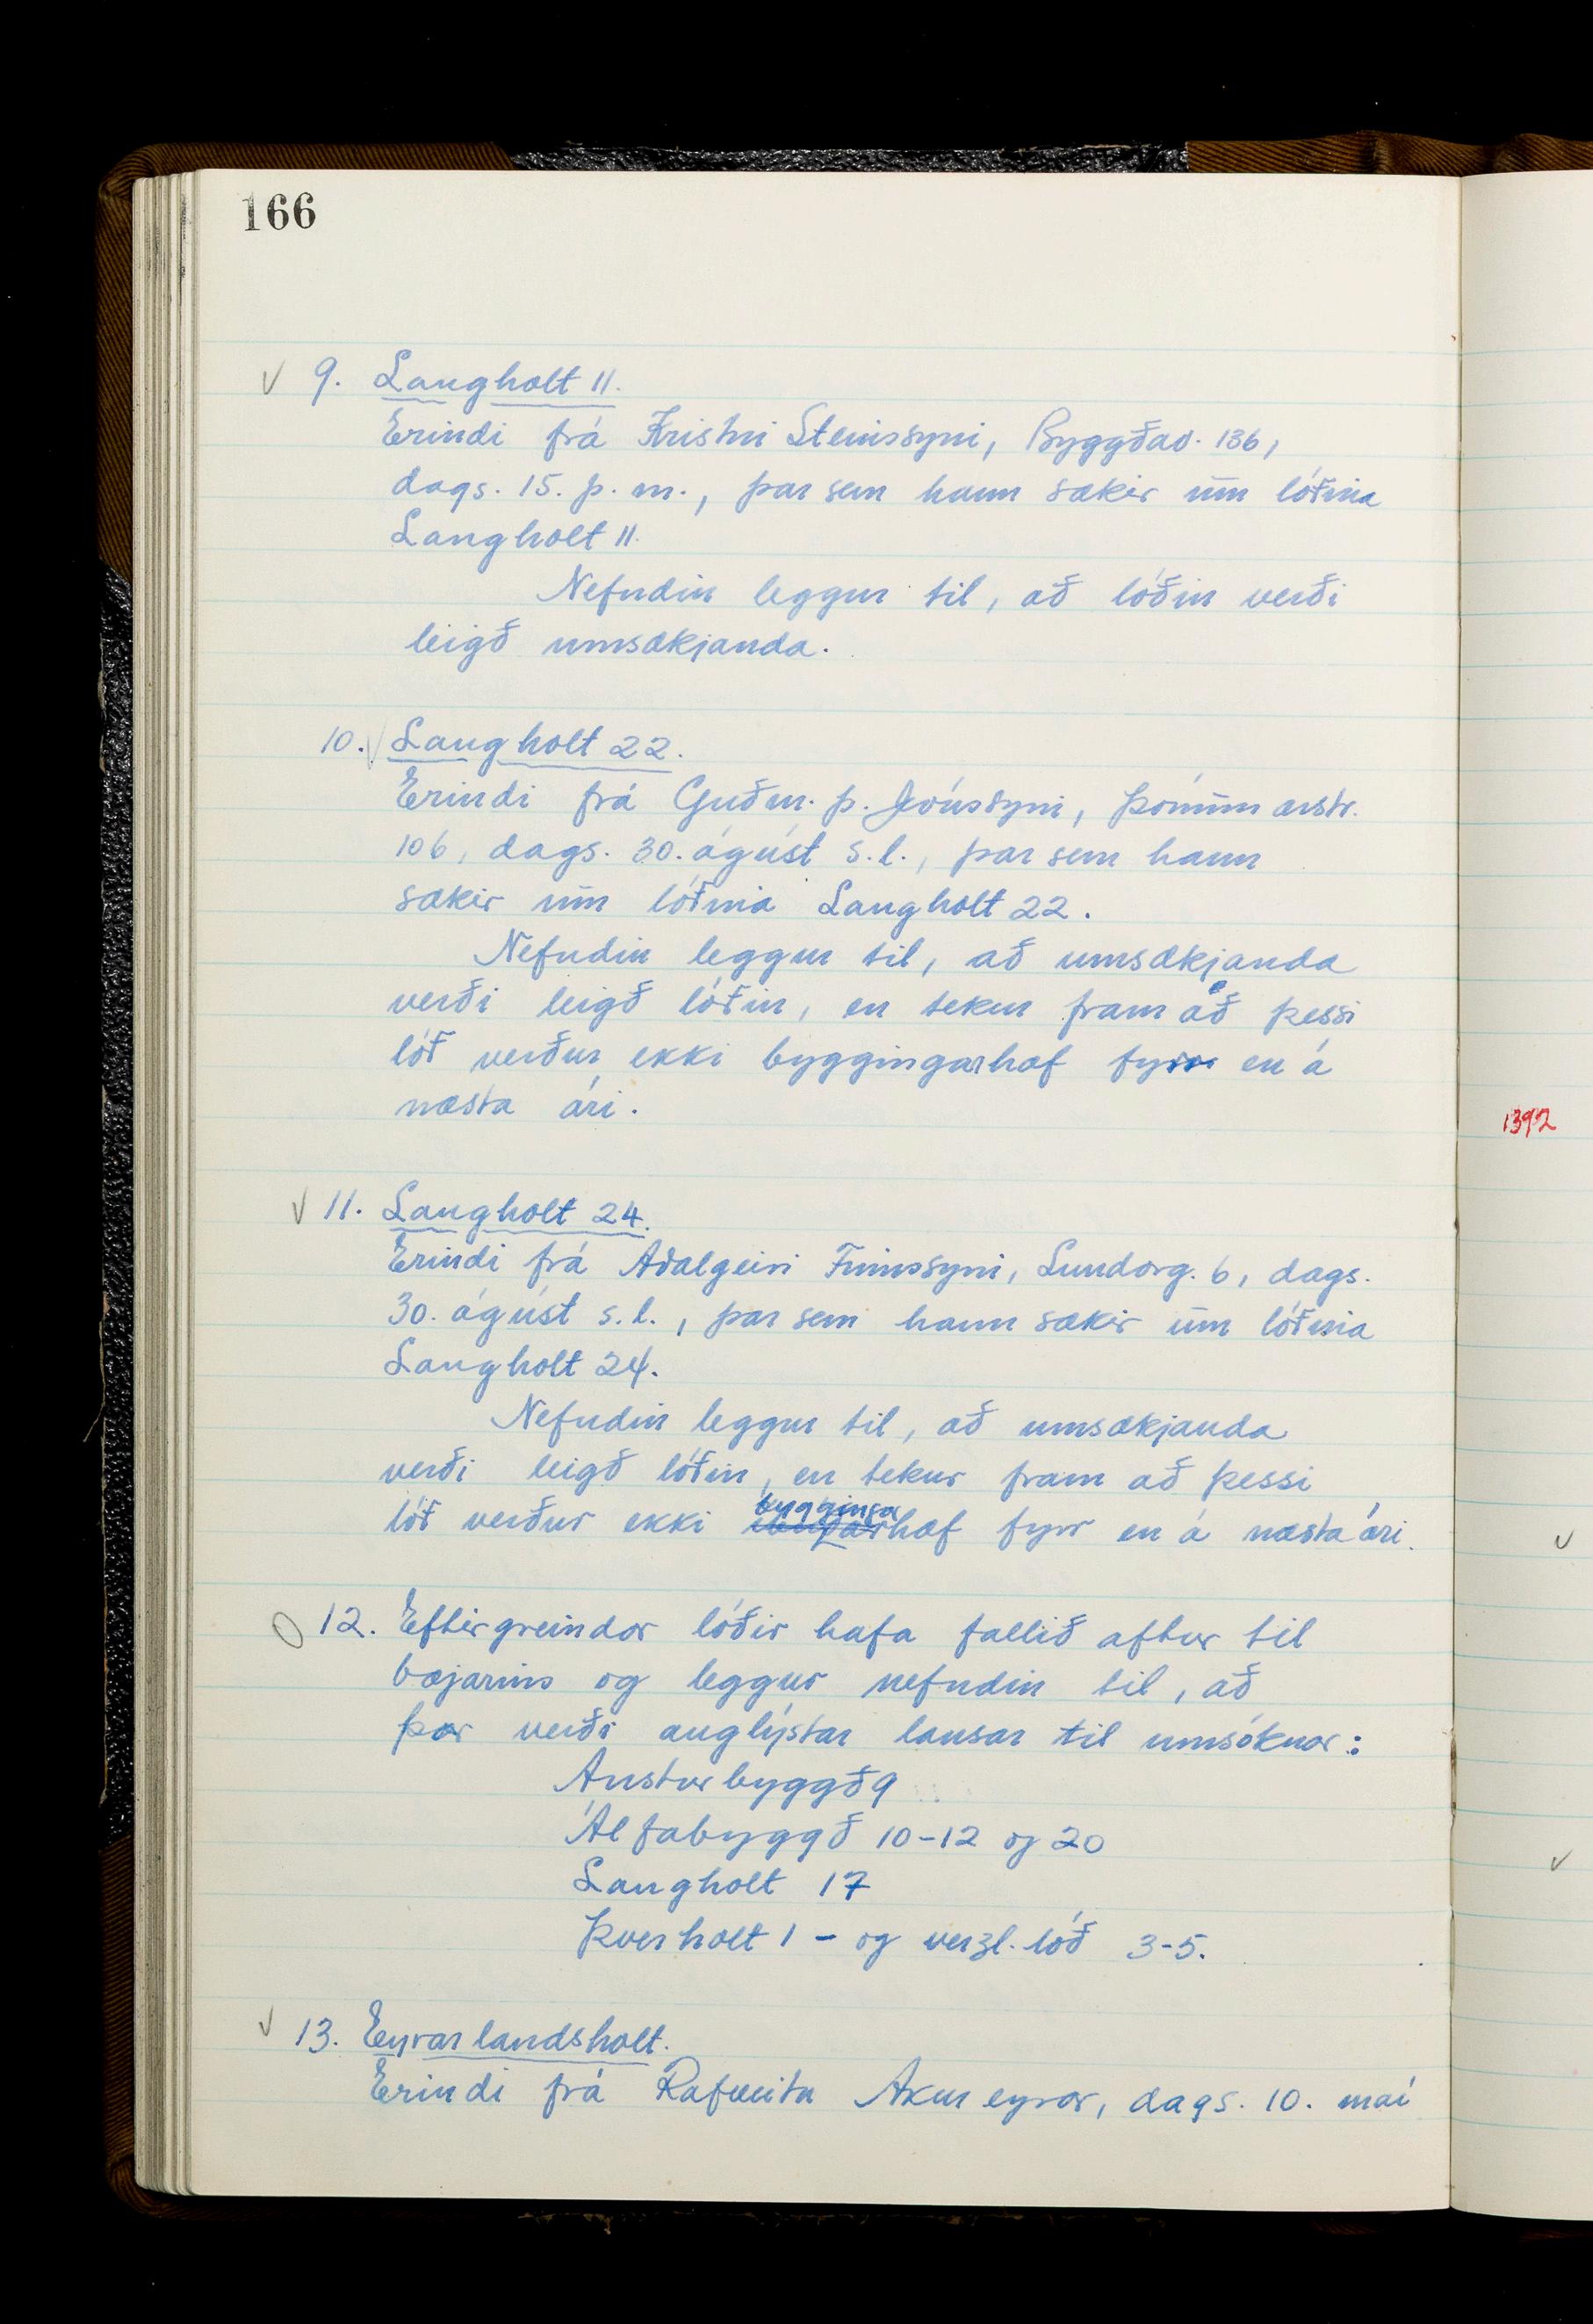 166
9. Langholt 11.
Erindi frá Kristni Steinssyni, Byggðav. 136,
dags. 15. þ. m., þar sem hann sækir um lóðina
Langholt 11.
Nefndin leggur til, að lóðin verði
leigð umsækjanda.
10. Langholt 22.
Erindi frá Guðm. Þ. Jónssyni, Þórunnarstr.
106, dags. 30. ágúst s.l., þar sem hann
sækir um lóðina Langholt 22.
Nefndin leggur til, að umsækjanda
verði leigð lóðin, en tekur fram að þessi
lóð verður ekki byggingarhæf fyrr en á
næsta ári.
1392
11. Langholt 24.
Erindi frá Aðalgeiri Finnssyni, Lundarg. 6, dags.
30. ágúst s.l., þar sem hann sækir um lóðina
Langholt 24.
Nefndin leggur til, að umsækjanda
verði leigð lóðin, en tekur fram að þessi
lóð verður ekki byggingarhæf fyrr en á næsta ári.
12. Eftirgreindar lóðir hafa fallið aftur til
bæjarins og leggur nefndin til, að
þær verði auglýstar lausar til umsóknar:
Austurbyggð 9
Álfabyggð 10-12 og 20
Langholt 17
Þverholt 1 - og verzl. lóð 3-5.
13. Eyrarlandsholt.
Erindi frá Rafveitu Akureyrar, dags. 10. maí